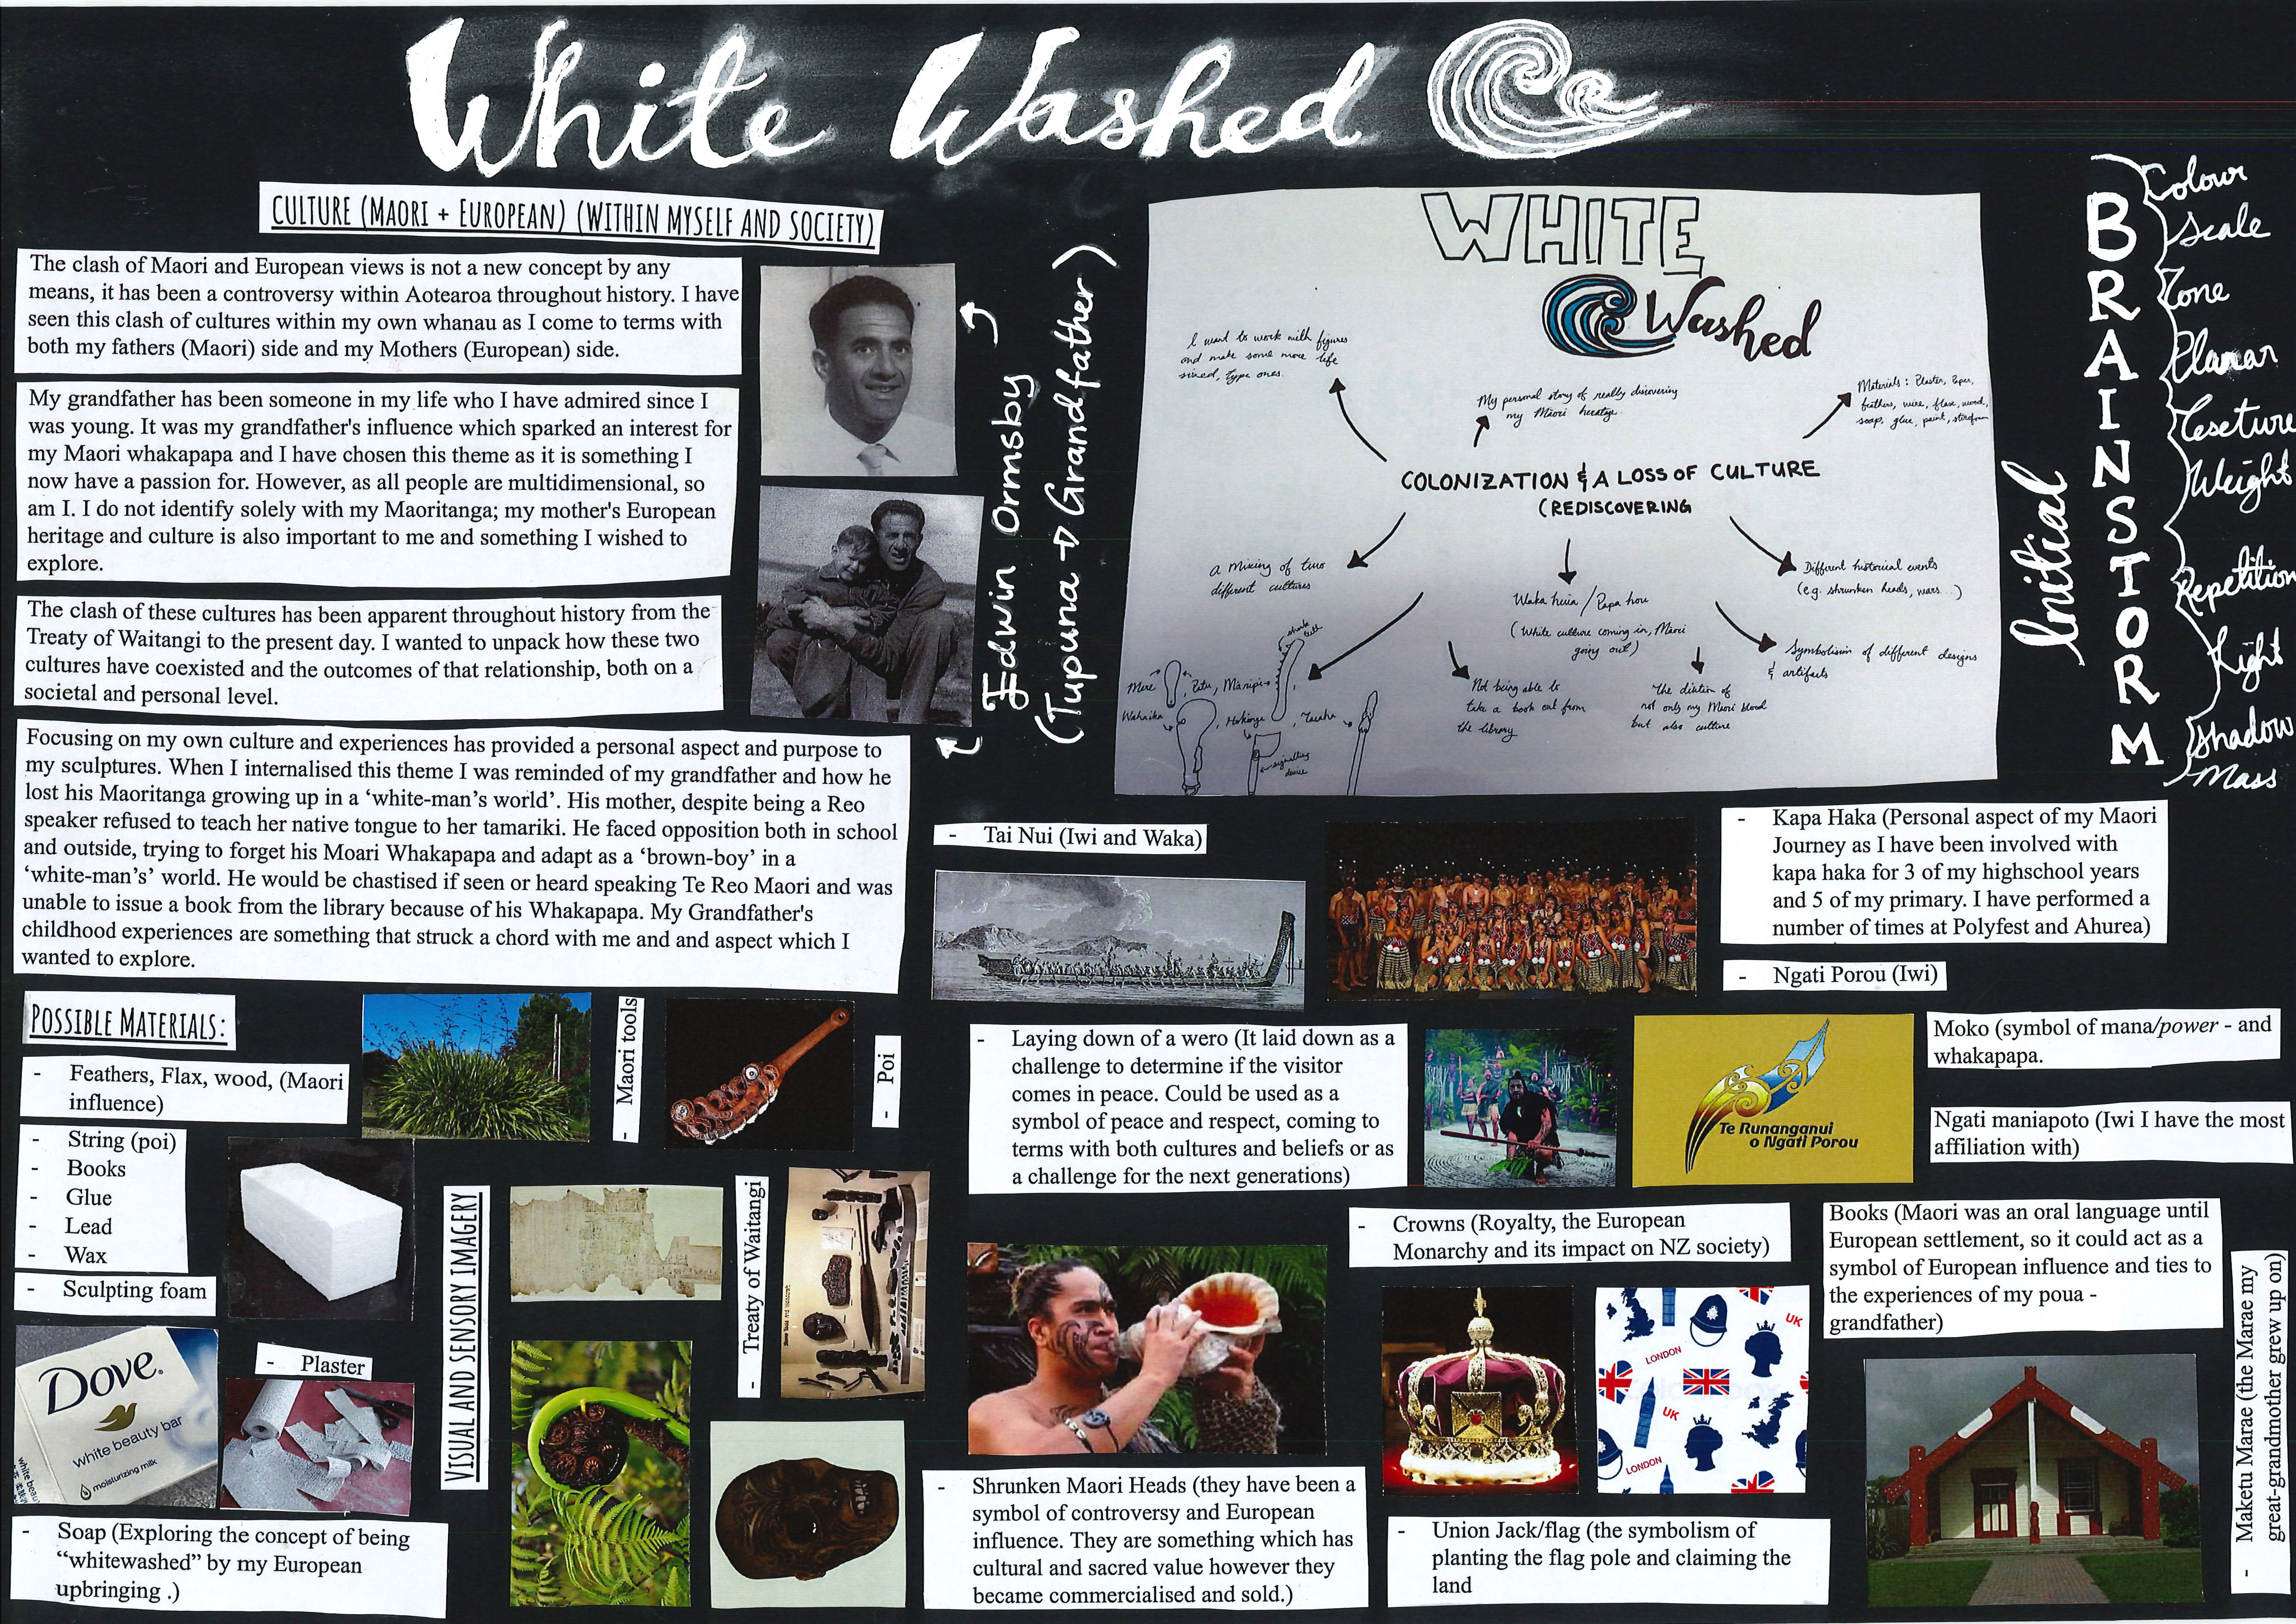 White Washed
CULTURE (MAORI + EUROPEAN) (WITHIN MYSELF AND SOCIETY)
The clash of Maori and European views is not a new concept by any
means, it has been a controversy within Aotearoa throughout history. I have
seen this clash of cultures within my own whanau as I come to terms with
both my fathers (Maori) side and my Mothers (European) side.
My grandfather has been someone in my life who I have admired since I
was young. It was my grandfather's influence which sparked an interest for
my Maori whakapapa and I have chosen this theme as it is something I
now have a passion for. However, as all people are multidimensional, so
am I. I do not identify solely with my Maoritanga; my mother's European
heritage and culture is also important to me and something I wished to
explore.
The clash of these cultures has been apparent throughout history from the
Treaty of Waitangi to the present day. I wanted to unpack how these two
cultures have coexisted and the outcomes of that relationship, both on a
societal and personal level.
Focusing on my own culture and experiences has provided a personal aspect and purpose to
my sculptures. When I internalised this theme I was reminded of my grandfather and how he
lost his Maoritanga growing up in a ‘white-man’s world’. His mother, despite being a Reo
speaker refused to teach her native tongue to her tamariki. He faced opposition both in school
and outside, trying to forget his Moari Whakapapa and adapt as a ‘brown-boy’ in a
‘white-man’s’ world. He would be chastised if seen or heard speaking Te Reo Maori and was
unable to issue a book from the library because of his Whakapapa. My Grandfather's
childhood experiences are something that struck a chord with me and and aspect which I
wanted to explore.
Edwin Ormsby
(Tupuna → Grandfather)
WHITE
Washed
I want to work with figures
and make some more life
sized, type ones.
My personal story of really discovering
my Māori heratige.
Materials: Plaster, Paper,
feathers, wire, flax, wood,
soap, glue, paint, storofoam
COLONIZATION & A LOSS OF CULTURE
(REDISCOVERING
A mixing of two
different cultures
Waka huia / Papa hou
(White culture coming in, Māori
going out)
Different historical events
(e.g. shrunken heads, wars...)
Symbolisim of different designs
& artifacts
shark
teeth
Mere → , Patu, Māripi →
Wahaika → , , Taiaha
signalling
device
Not being able to
take a book out from
the library
The dilution of
not only my Māori blood
but also culture
Initial
BRAINSTORM
Colour
Scale
Tone
Planar
Texture
Weight
Repetition
Light
Shadow
Mass
- Tai Nui (Iwi and Waka)
- Kapa Haka (Personal aspect of my Maori
Journey as I have been involved with
kapa haka for 3 of my highschool years
and 5 of my primary. I have performed a
number of times at Polyfest and Ahurea)
- Ngati Porou (Iwi)
POSSIBLE MATERIALS:
- Feathers, Flax, wood, (Maori
influence)
- String (poi)
- Books
- Glue
- Lead
- Wax
- Sculpting foam
- Maori tools
- Poi
- Laying down of a wero (It laid down as a
challenge to determine if the visitor
comes in peace. Could be used as a
symbol of peace and respect, coming to
terms with both cultures and beliefs or as
a challenge for the next generations)
Te Runanganui
o Ngāti Porou
Moko (symbol of mana/power - and
whakapapa.
Ngati maniapoto (Iwi I have the most
affiliation with)
Dove
white beauty bar
moisturizing milk
- Plaster
- Soap (Exploring the concept of being
“whitewashed” by my European
upbringing .)
VISUAL AND SENSORY IMAGERY
- Treaty of Waitangi
- Shrunken Maori Heads (they have been a
symbol of controversy and European
influence. They are something which has
cultural and sacred value however they
became commercialised and sold.)
- Crowns (Royalty, the European
Monarchy and its impact on NZ society)
UK
LONDON
UK
LONDON
- Union Jack/flag (the symbolism of
planting the flag pole and claiming the
land
Books (Maori was an oral language until
European settlement, so it could act as a
symbol of European influence and ties to
the experiences of my poua -
grandfather)
- Maketu Marae (the Marae my
great-grandmother grew up on)